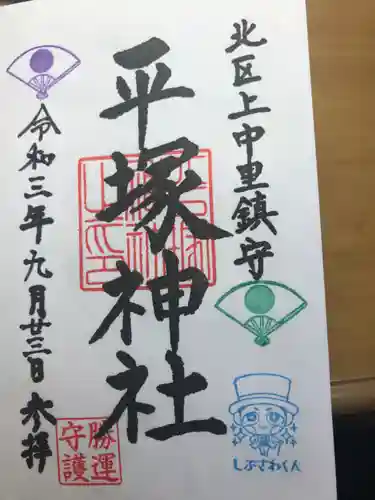 北区上中里鎮守
平塚神社
令和三年九月廿三日 参拝
勝運
守護
しぶさわくん